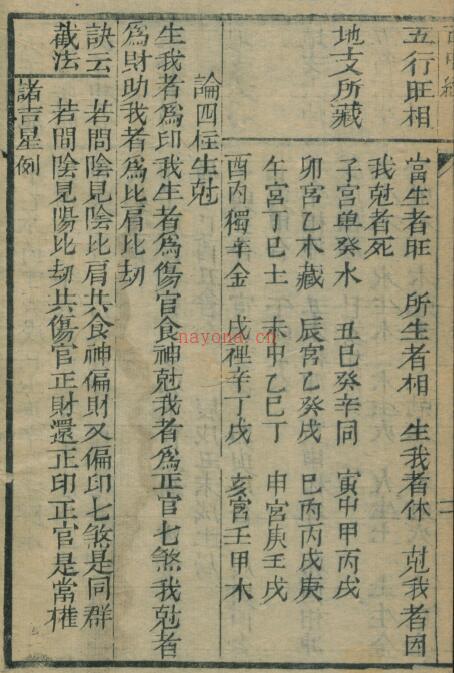 五行旺相
當生者旺　所生者相　生我者休　尅我者因
我尅者死
地支所藏
子宮单癸水　丑巳癸辛同　寅中甲丙戌
卯宮乙木藏　辰宮乙癸戌　巳丙丙戌庚
午宮丁巳土　未中乙巳丁　申宮庚壬戌
酉內獨辛金　戌裡辛丁戌　亥宮壬甲木
論四柱生尅
生我者爲印我生者爲傷官食神尅我者爲正官七煞我尅者
爲財助我者爲比肩比刼
訣云
若問陰見陰比肩共食神偏財又偏印七煞是同群
截法
若問陰見陽比刼共傷官正財還正印正官是當權
諸吉星例
nayona.cn